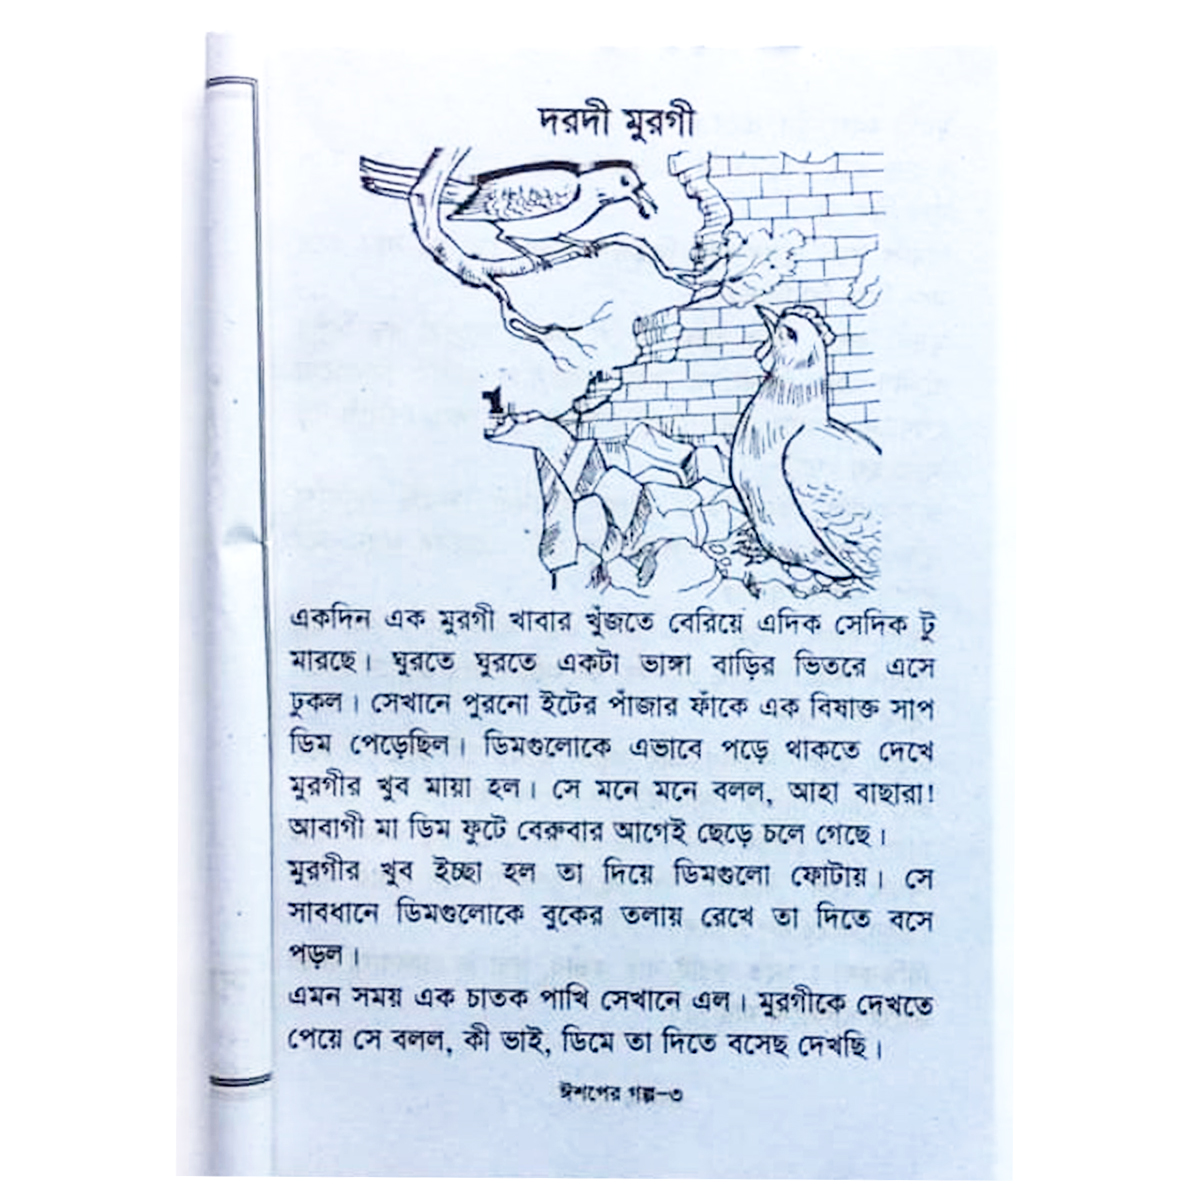 দরদী মুরগী
একদিন এক মুরগী খাবার খুঁজতে বেরিয়ে এদিক সেদিক টু
মারছে। ঘুরতে ঘুরতে একটা ভাঙ্গা বাড়ির ভিতরে এসে
ঢুকল। সেখানে পুরনো ইটের পাঁজার ফাঁকে এক বিষাক্ত সাপ
ডিম পেড়েছিল। ডিমগুলোকে এভাবে পড়ে থাকতে দেখে
মুরগীর খুব মায়া হল। সে মনে মনে বলল, আহা বাছারা!
আবাগী মা ডিম ফুটে বেরুবার আগেই ছেড়ে চলে গেছে।
মুরগীর খুব ইচ্ছা হল তা দিয়ে ডিমগুলো ফোটায়। সে
সাবধানে ডিমগুলোকে বুকের তলায় রেখে তা দিতে বসে
পড়ল।
এমন সময় এক চাতক পাখি সেখানে এল। মুরগীকে দেখতে
পেয়ে সে বলল, কী ভাই, ডিমে তা দিতে বসেছ দেখছি।
ঈশপের গল্প-৩